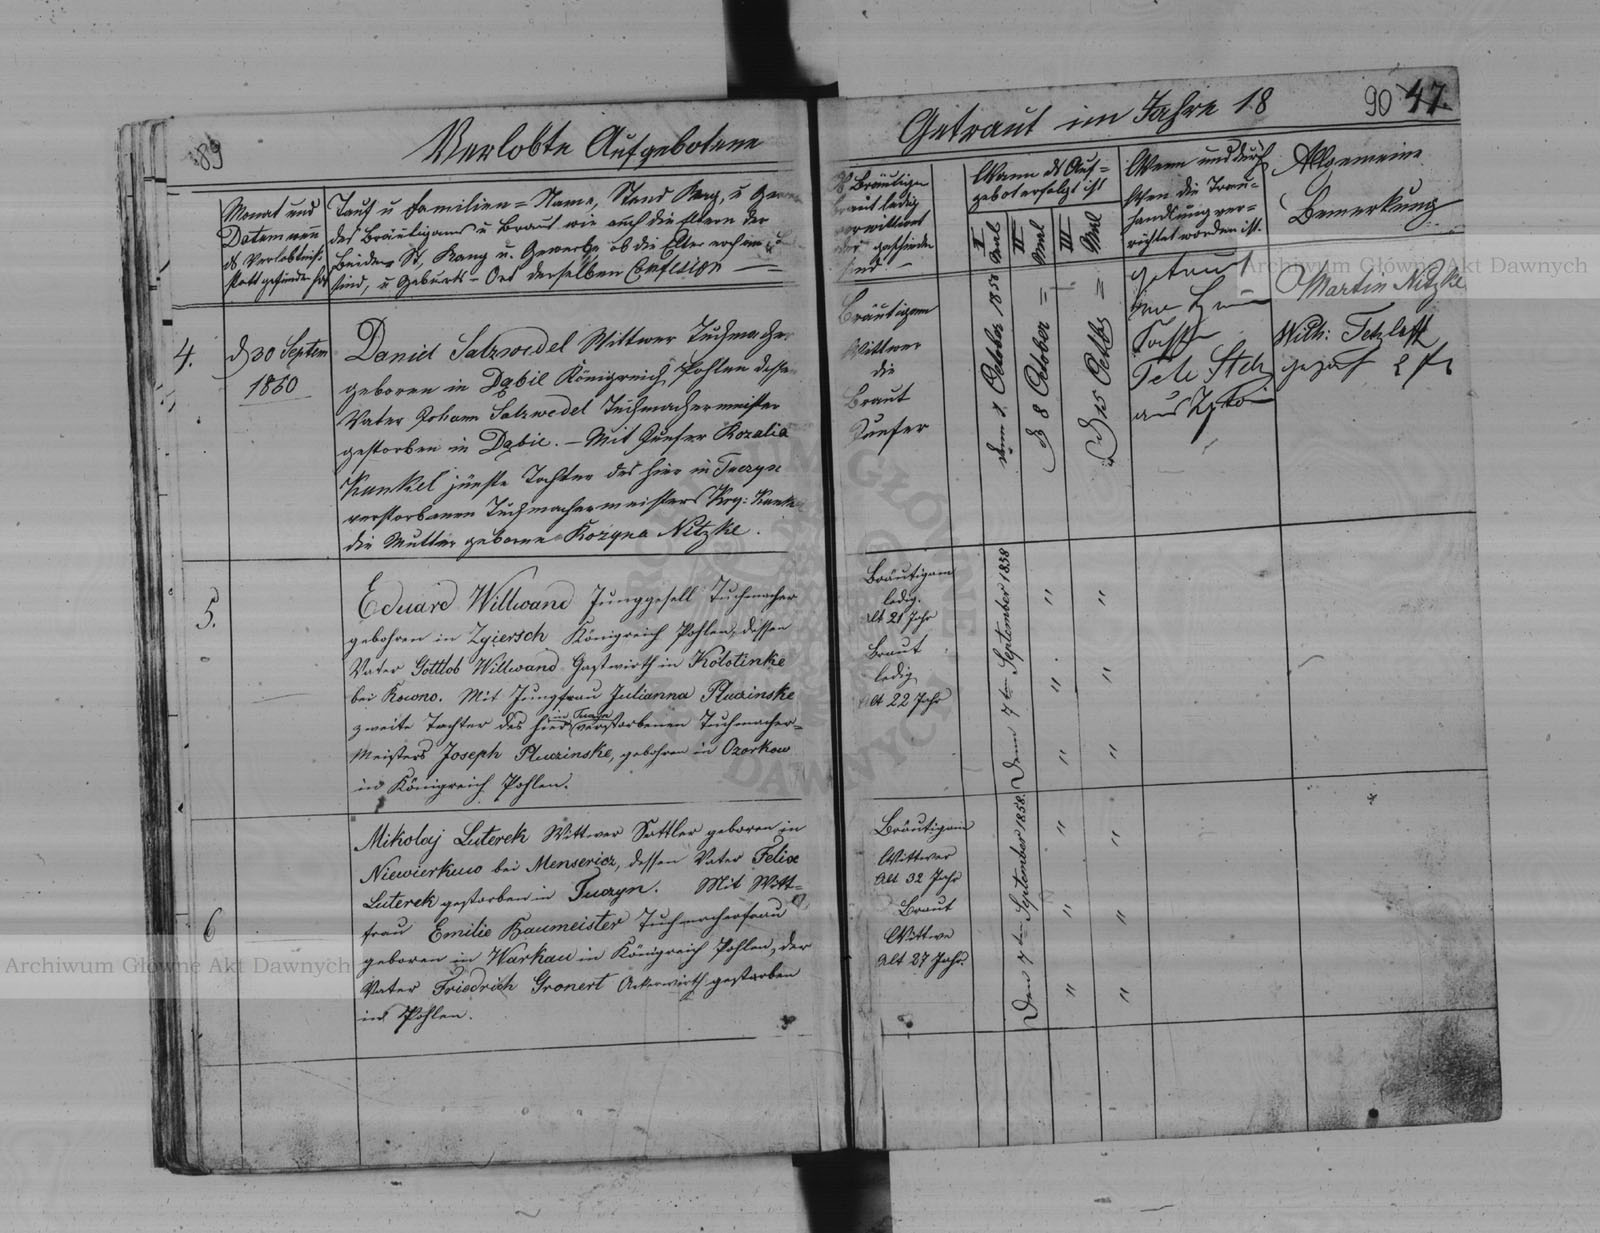 89
Verlobte Aufgebotene
Monat und
Datum wenn
Tauf u Familien = Name, Stand Rang, u
des Bräutigams u Braut wie auch die Eltern der
Beiden St. Rang u. Gewerbe ob die Elter noch
sind, u Geburts - Ort derselben Confesion
4.
d 30 Septem
1850
Daniel Salzwedel Wittwer Tuchmacher
geboren in Dąbie Königreich Pohlen
Vater Johann Salzwedel Tuchmachermeister
gestorben in Dąbie. - Mit Junfer Rozalia
Kunkel Tochter des hier in Tuczyn
verstorbenen Tuchmachermeisters
die Mutter geborne Rozyna Nitzke.
5.
Eduard Willwand Junggesell Tuchmacher
gebohren in Zgiersch Königreich Pohlen, dessen
Vater Gottlob Willwand Gastwirth in Kolotinke
bei Kowno. Mit Jungfrau Julianna Pluzinske
zweite Tochter des hier verstorbenen Tuchmacher=
Meisters Joseph Pluzinske, gebohren in Ozorkow
in Königreich Pohlen.
6
Mikolaj Luterek Wittwer Sattler geboren in
Niewierkuw bei Mensericz, dessen Vater Felix
Luterek gestorben in Tuczyn. Mit Witt=
frau Emilie Baumeister Tuchmacherfrau
geboren in Warkau in Königreich Pohlen, der
Vater Friedrich Gronert Ackerwirth gestorben
in Pohlen.
Getraut im Jahre 18
90 47.
Bräutigam
Braut ledig
verwittwet
geschieden
sind
Wann ds Auf=
gebot erfolgt ist
I
mal
II
mal
III
mal
Wenn und durch
Wen die Trau=
handlung ver=
richtet worden ist.
Allgemeine
Bemerkung
Bräutigam
Wittwer
die
Braut
Junfer
October 1850
d 8 October =
d 15 Octbr =
getraut
Martin Nitzke
Wilh: Tetzlaff
Bräutigam
ledig.
Alt 21 Jahr
Braut
ledig
Alt 22 Jahr
Dem 7ten September 1858
" "
" "
" "
Bräutigam
Wittwer
Alt 32 Jahr
Braut
Wittwe
Alt 27 Jahr.
Den 7ten September 1858.
" "
" "
" "
Archiwum Główne Akt Dawnych
Archiwum Główne Akt Dawnych